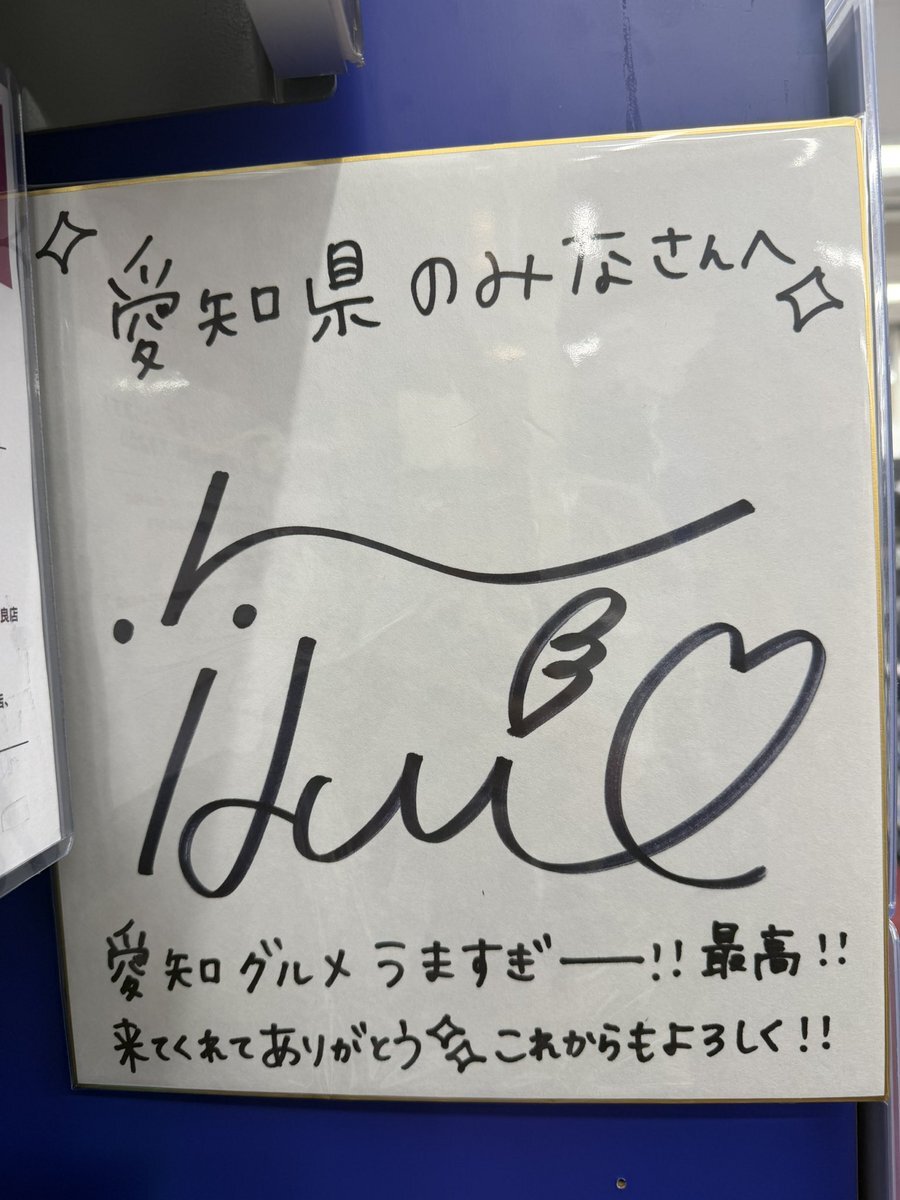 愛知県のみなさんへ
愛知グルメうますぎーー!! 最高!!
来てくれてありがとう これからもよろしく!!
良店